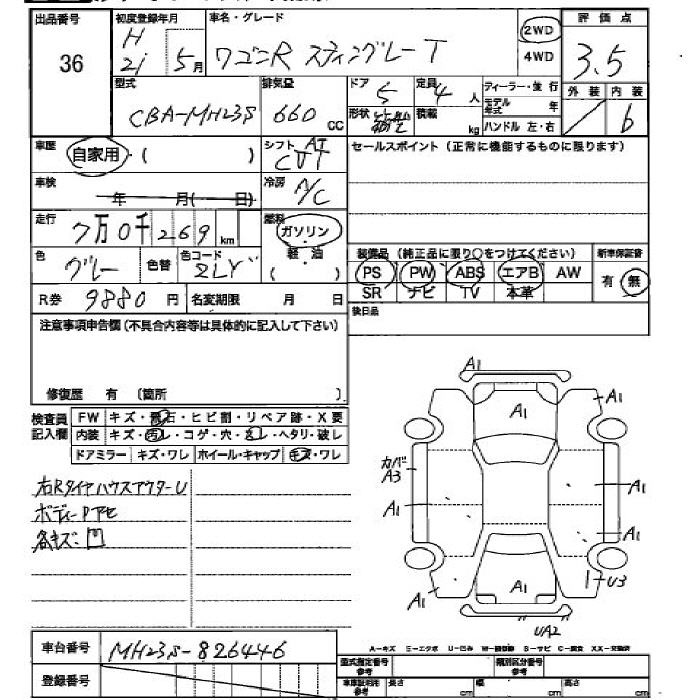 出品番号 初度登録年月 車名・グレード 評価点
36 H 21 5月 ワゴンR スティングレーT 2WD 4WD 3.5
型式 排気量 ドア 定員 ディーラー・並行 外装 内装
CBA-MH23S 660 CC 5 4人 モデル年式 年 b
形状 積載 kg ハンドル 左・右
車歴 自家用・( ) シフト AT CVT セールスポイント (正常に機能するものに限ります)
車検 年 月( ) 冷房 A/C
走行 7万0千269km 燃料 ガソリン・軽油 ( )
色 グレー 色替 色コード ZLY 装備品 (純正品に限り○をつけてください) 新車保証書
PS PW ABS エアB AW 有・無
SR ナビ TV 本革
R券 9880円 名変期限 月 日 後日品
注意事項申告欄 (不具合内容等は具体的に記入して下さい)
修復歴 有 (箇所 )
検査員記入欄 FW キズ・飛石・ヒビ割・リペア跡・X要
内装 キズ・汚レ・コゲ・穴・スレ・ヘタリ・破レ
ドアミラー キズ・ワレ ホイール・キャップ キズ・ワレ
右Rタイヤハウスアウター U
ボディーPアセ
各キズ・凹
A1
A1
A1
カバーA3
A1
A1
A1
A1
A1
A1
U3
UA2
A-キズ E-エクボ U-凹み S-サビ C-腐食 XX-交換済
車台番号 MH23S-826446
登録番号
型式指定番号 参考 類別区分番号 参考
車車証明用 参考 長さ cm 幅 cm 高さ cm